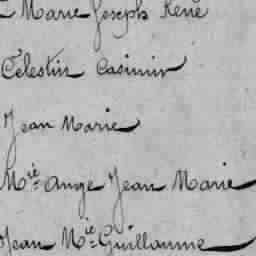 Marie Joseph René
Célestin Casimir
Jean Marie
Mie Ange Jean Marie
Jean Mie Guillaume